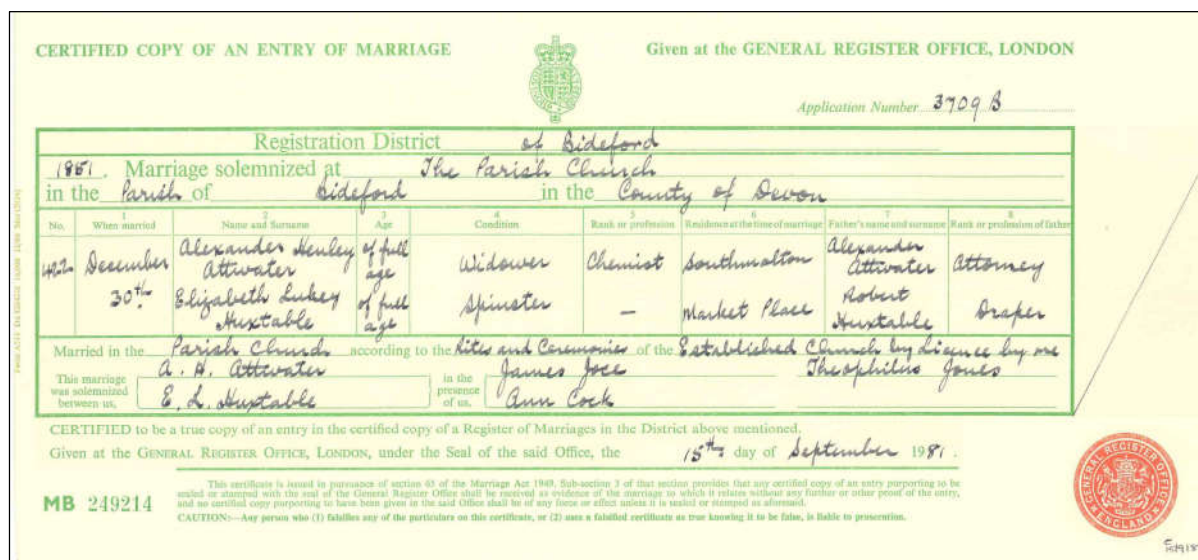 CERTIFIED COPY OF AN ENTRY OF MARRIAGE
Given at the GENERAL REGISTER OFFICE, LONDON
Application Number 3709 B
Registration District of Bideford
1851. Marriage solemnized at The Parish Church
in the Parish of Bideford in the County of Devon
1 2 3 4 5 6 7 8
No. When married Name and Surname Age Condition Rank or profession Residence at the time of marriage Father's name and surname Rank or profession of father
422 December 30th Alexander Henley Attwater of full age Widower Chemist Southmolton Alexander Attwater Attorney
Elizabeth Lukey Huxtable of full age Spinster — Market Place Robert Huxtable Draper
Married in the Parish Church according to the Rites and Ceremonies of the Established Church by Licence by me
This marriage was solemnized between us, A. H. Attwater in the presence of us, James Joce Theophilus Jones
E. L. Huxtable Ann Cock
CERTIFIED to be a true copy of an entry in the certified copy of a Register of Marriages in the District above mentioned.
Given at the GENERAL REGISTER OFFICE, LONDON, under the Seal of the said Office, the 15th day of September 1981.
MB 249214
This certificate is issued in pursuance of section 65 of the Marriage Act 1949. Sub-section 3 of that section provides that any certified copy of an entry purporting to be
sealed or stamped with the seal of the General Register Office shall be received as evidence of the marriage to which it relates without any further or other proof of the entry,
and no certified copy purporting to have been given in the said Office shall be of any force or effect unless it is sealed or stamped as aforesaid.
CAUTION:—Any person who (1) falsifies any of the particulars on this certificate, or (2) uses a falsified certificate as true knowing it to be false, is liable to prosecution.
GENERAL REGISTER OFFICE
ENGLAND